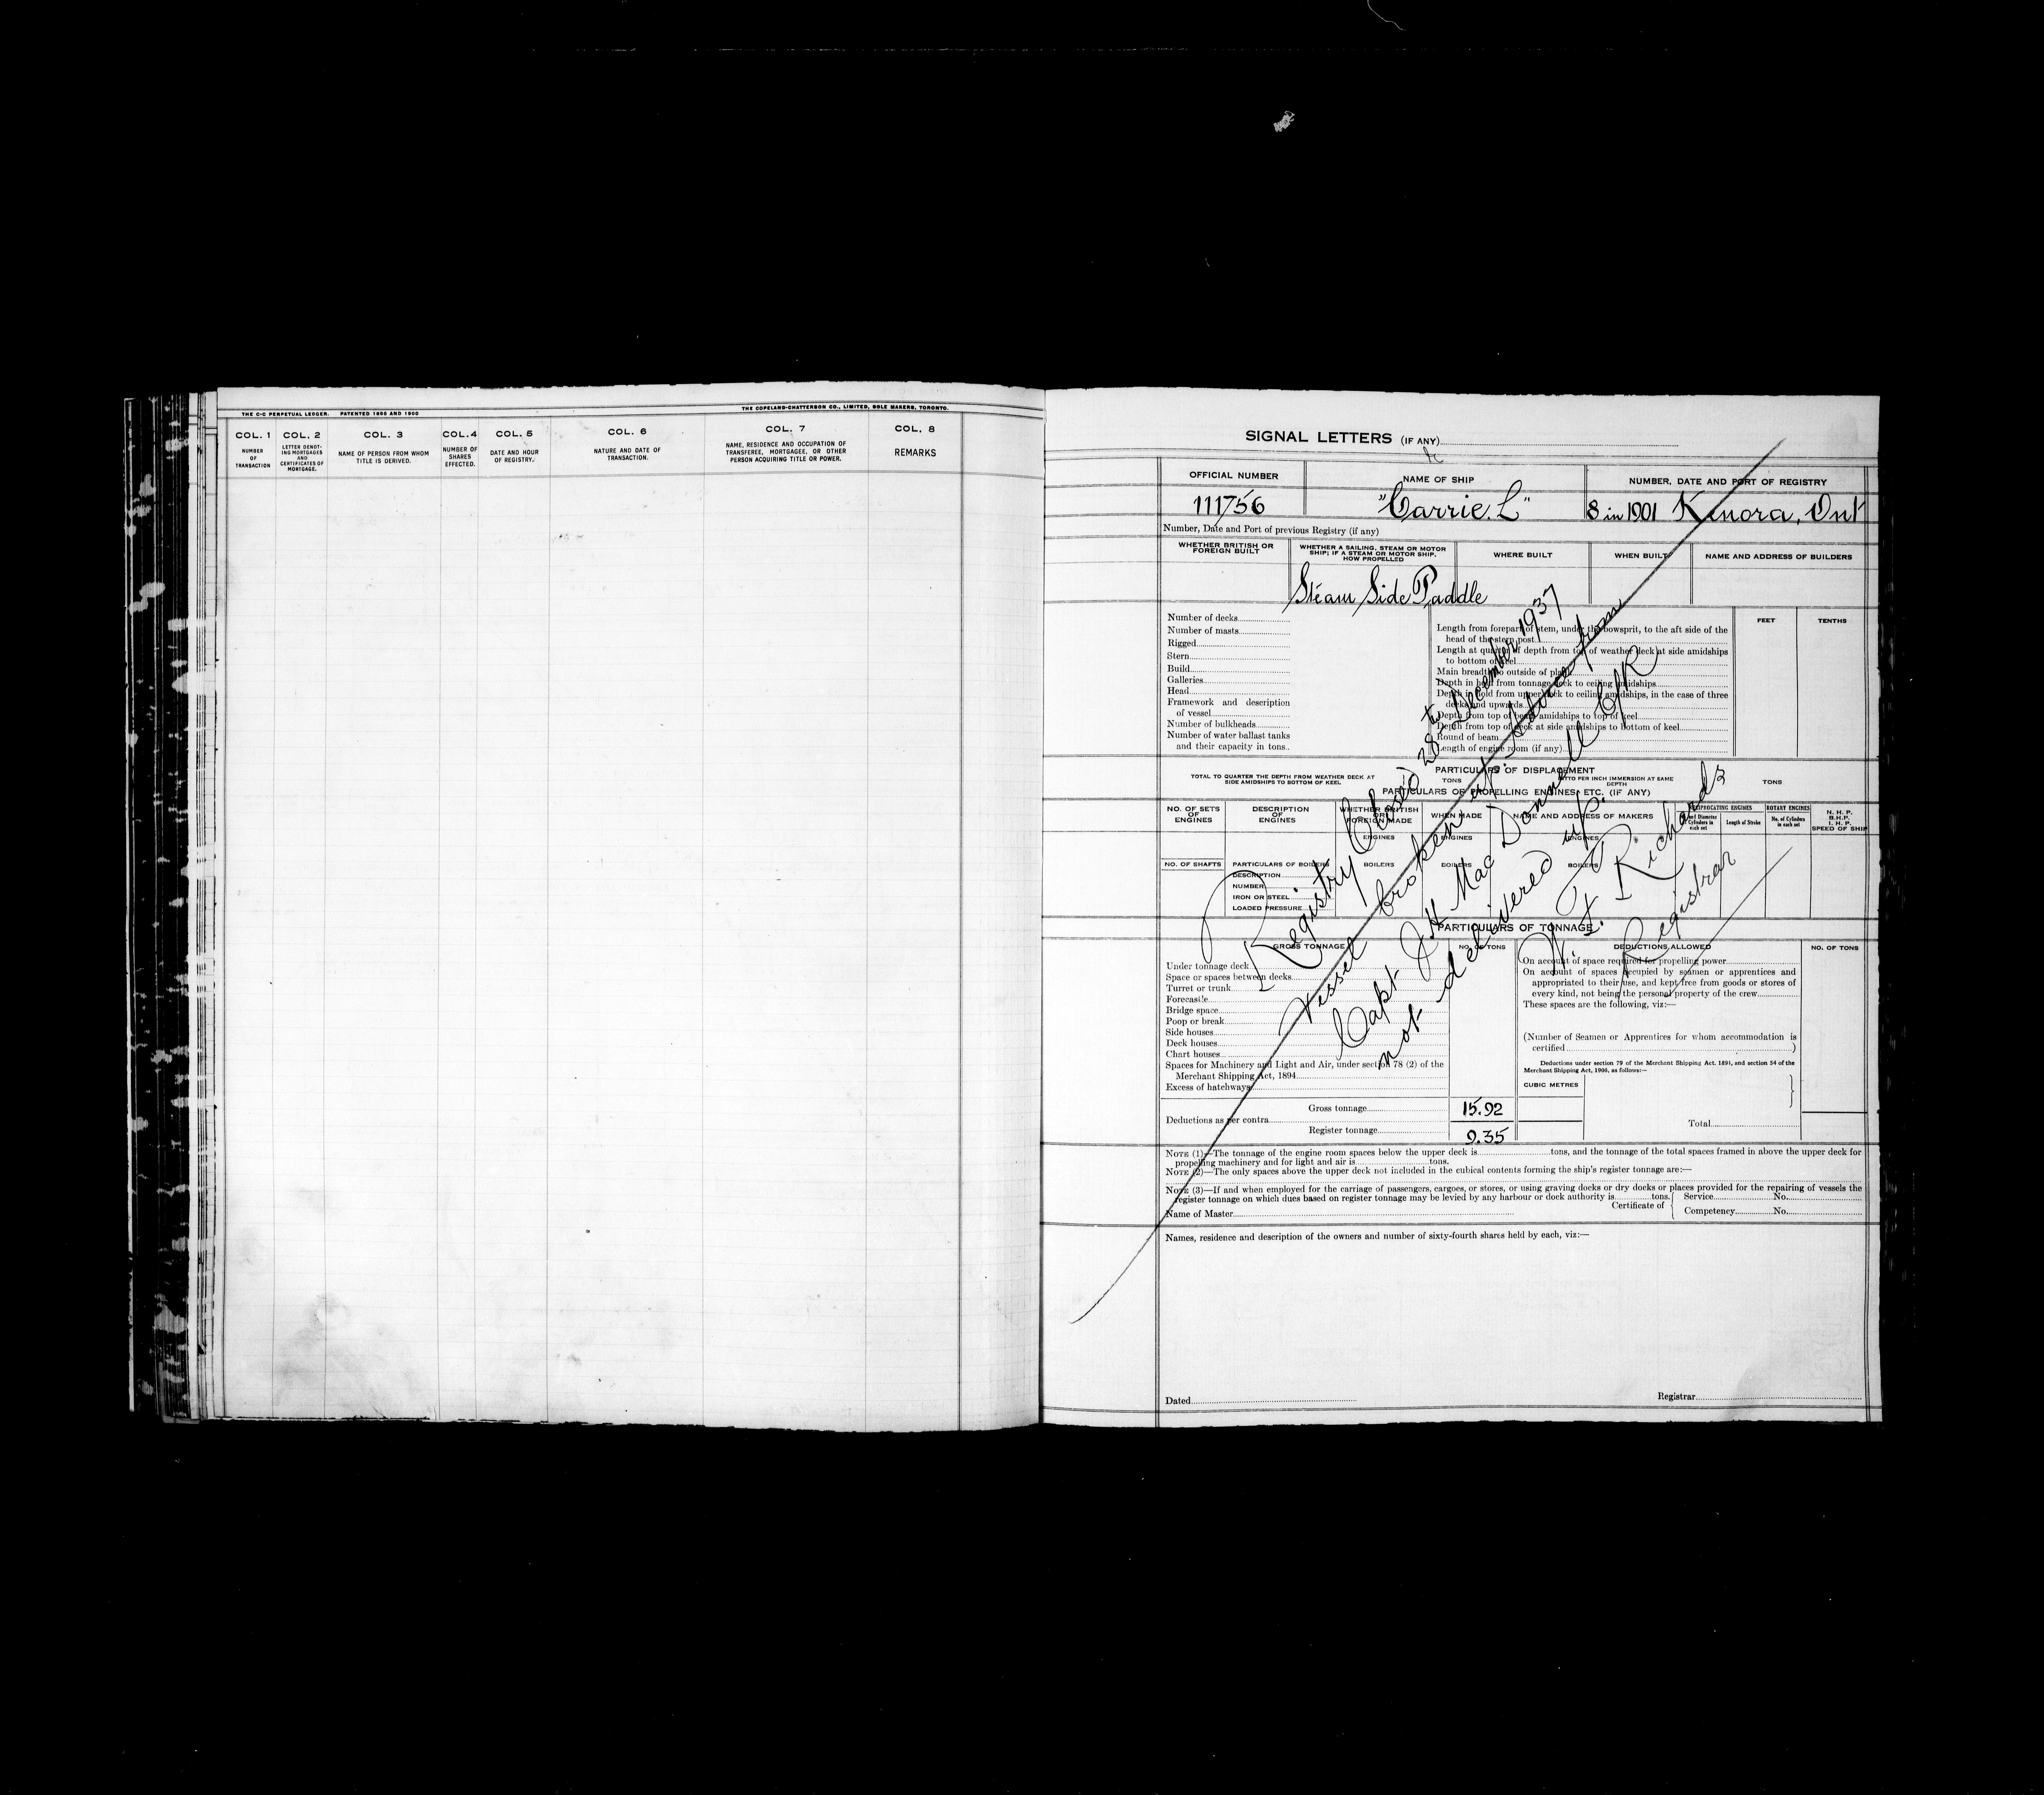 THE C-C PERPETUAL LEDGER. PATENTED 1896 AND 1900
THE COPELAND-CHATTERSON CO., LIMITED, SOLE MAKERS, TORONTO.
COL. 1
NUMBER
OF
TRANSACTION
COL. 2
LETTER DENOT-
ING MORTGAGES
AND
CERTIFICATES OF
MORTGAGE.
COL. 3
NAME OF PERSON FROM WHOM
TITLE IS DERIVED.
COL. 4
NUMBER OF
SHARES
EFFECTED.
COL. 5
DATE AND HOUR
OF REGISTRY.
COL. 6
NATURE AND DATE OF
TRANSACTION.
COL. 7
NAME, RESIDENCE AND OCCUPATION OF
TRANSFEREE, MORTGAGEE, OR OTHER
PERSON ACQUIRING TITLE OR POWER.
COL. 8
REMARKS
SIGNAL LETTERS (IF ANY)
OFFICIAL NUMBER
111756
NAME OF SHIP
"Carrie. L"
NUMBER, DATE AND PORT OF REGISTRY
8 in 1901 Kenora, Ont
Number, Date and Port of previous Registry (if any)
WHETHER BRITISH OR
FOREIGN BUILT
WHETHER A SAILING, STEAM OR MOTOR
SHIP; IF A STEAM OR MOTOR SHIP,
HOW PROPELLED
Steam Side Paddle
WHERE BUILT
WHEN BUILT
NAME AND ADDRESS OF BUILDERS
Number of decks
Number of masts
Rigged
Stern
Build
Galleries
Head
Framework and description
of vessel
Number of bulkheads
Number of water ballast tanks
and their capacity in tons
FEET
TENTHS
Length from forepart of stem, under the bowsprit, to the aft side of the
head of the stern post
Length at quarter of depth from top of weather deck at side amidships
to bottom of keel
Main breadth to outside of plank
Depth in hold from tonnage deck to ceiling amidships
Depth in hold from upper deck to ceiling amidships, in the case of three
decks and upwards
Depth from top of beam amidships to top of keel
Depth from top of deck at side amidships to bottom of keel
Round of beam
Length of engine room (if any)
PARTICULARS OF DISPLACEMENT
TOTAL TO QUARTER THE DEPTH FROM WEATHER DECK AT
SIDE AMIDSHIPS TO BOTTOM OF KEEL
TONS
DITTO PER INCH IMMERSION AT SAME
DEPTH
TONS
PARTICULARS OF PROPELLING ENGINES, ETC. (IF ANY)
NO. OF SETS
OF
ENGINES
DESCRIPTION
OF
ENGINES
WHETHER BRITISH
OR
FOREIGN MADE
WHEN MADE
NAME AND ADDRESS OF MAKERS
RECIPROCATING ENGINES
No. and Diameter
of Cylinders in
each set
Length of Stroke
ROTARY ENGINES
No. of Cylinders
in each set
N. H. P.
B.H.P.
I. H. P.
SPEED OF SHIP
ENGINES
ENGINES
ENGINES
NO. OF SHAFTS
PARTICULARS OF BOILERS
BOILERS
BOILERS
BOILERS
DESCRIPTION
NUMBER
IRON OR STEEL
LOADED PRESSURE
PARTICULARS OF TONNAGE
GROSS TONNAGE
NO. OF TONS
DEDUCTIONS ALLOWED
NO. OF TONS
Under tonnage deck
Space or spaces between decks
Turret or trunk
Forecastle
Bridge space
Poop or break
Side houses
Deck houses
Chart houses
Spaces for Machinery and Light and Air, under section 78 (2) of the
Merchant Shipping Act, 1894
Excess of hatchways
Gross tonnage 15.92
Deductions as per contra
Register tonnage 9.35
On account of space required for propelling power
On account of spaces occupied by seamen or apprentices and
appropriated to their use, and kept free from goods or stores of
every kind, not being the personal property of the crew
These spaces are the following, viz:—
(Number of Seamen or Apprentices for whom accommodation is
certified )
Deductions under section 79 of the Merchant Shipping Act, 1894, and section 54 of the
Merchant Shipping Act, 1906, as follows:—
CUBIC METRES
Total
NOTE (1)—The tonnage of the engine room spaces below the upper deck is tons, and the tonnage of the total spaces framed in above the upper deck for
propelling machinery and for light and air is tons.
NOTE (2)—The only spaces above the upper deck not included in the cubical contents forming the ship's register tonnage are:—
NOTE (3)—If and when employed for the carriage of passengers, cargoes, or stores, or using graving docks or dry docks or places provided for the repairing of vessels the
register tonnage on which dues based on register tonnage may be levied by any harbour or dock authority is tons.
Name of Master
Certificate of { Service No.
Competency No.
Names, residence and description of the owners and number of sixty-fourth shares held by each, viz:—
Dated
Registrar
Registry Closed 28th December 1937
Vessel broken up. Advice from
Capt J H MacDonnell C/R
not delivered up.
Richards
Registrar